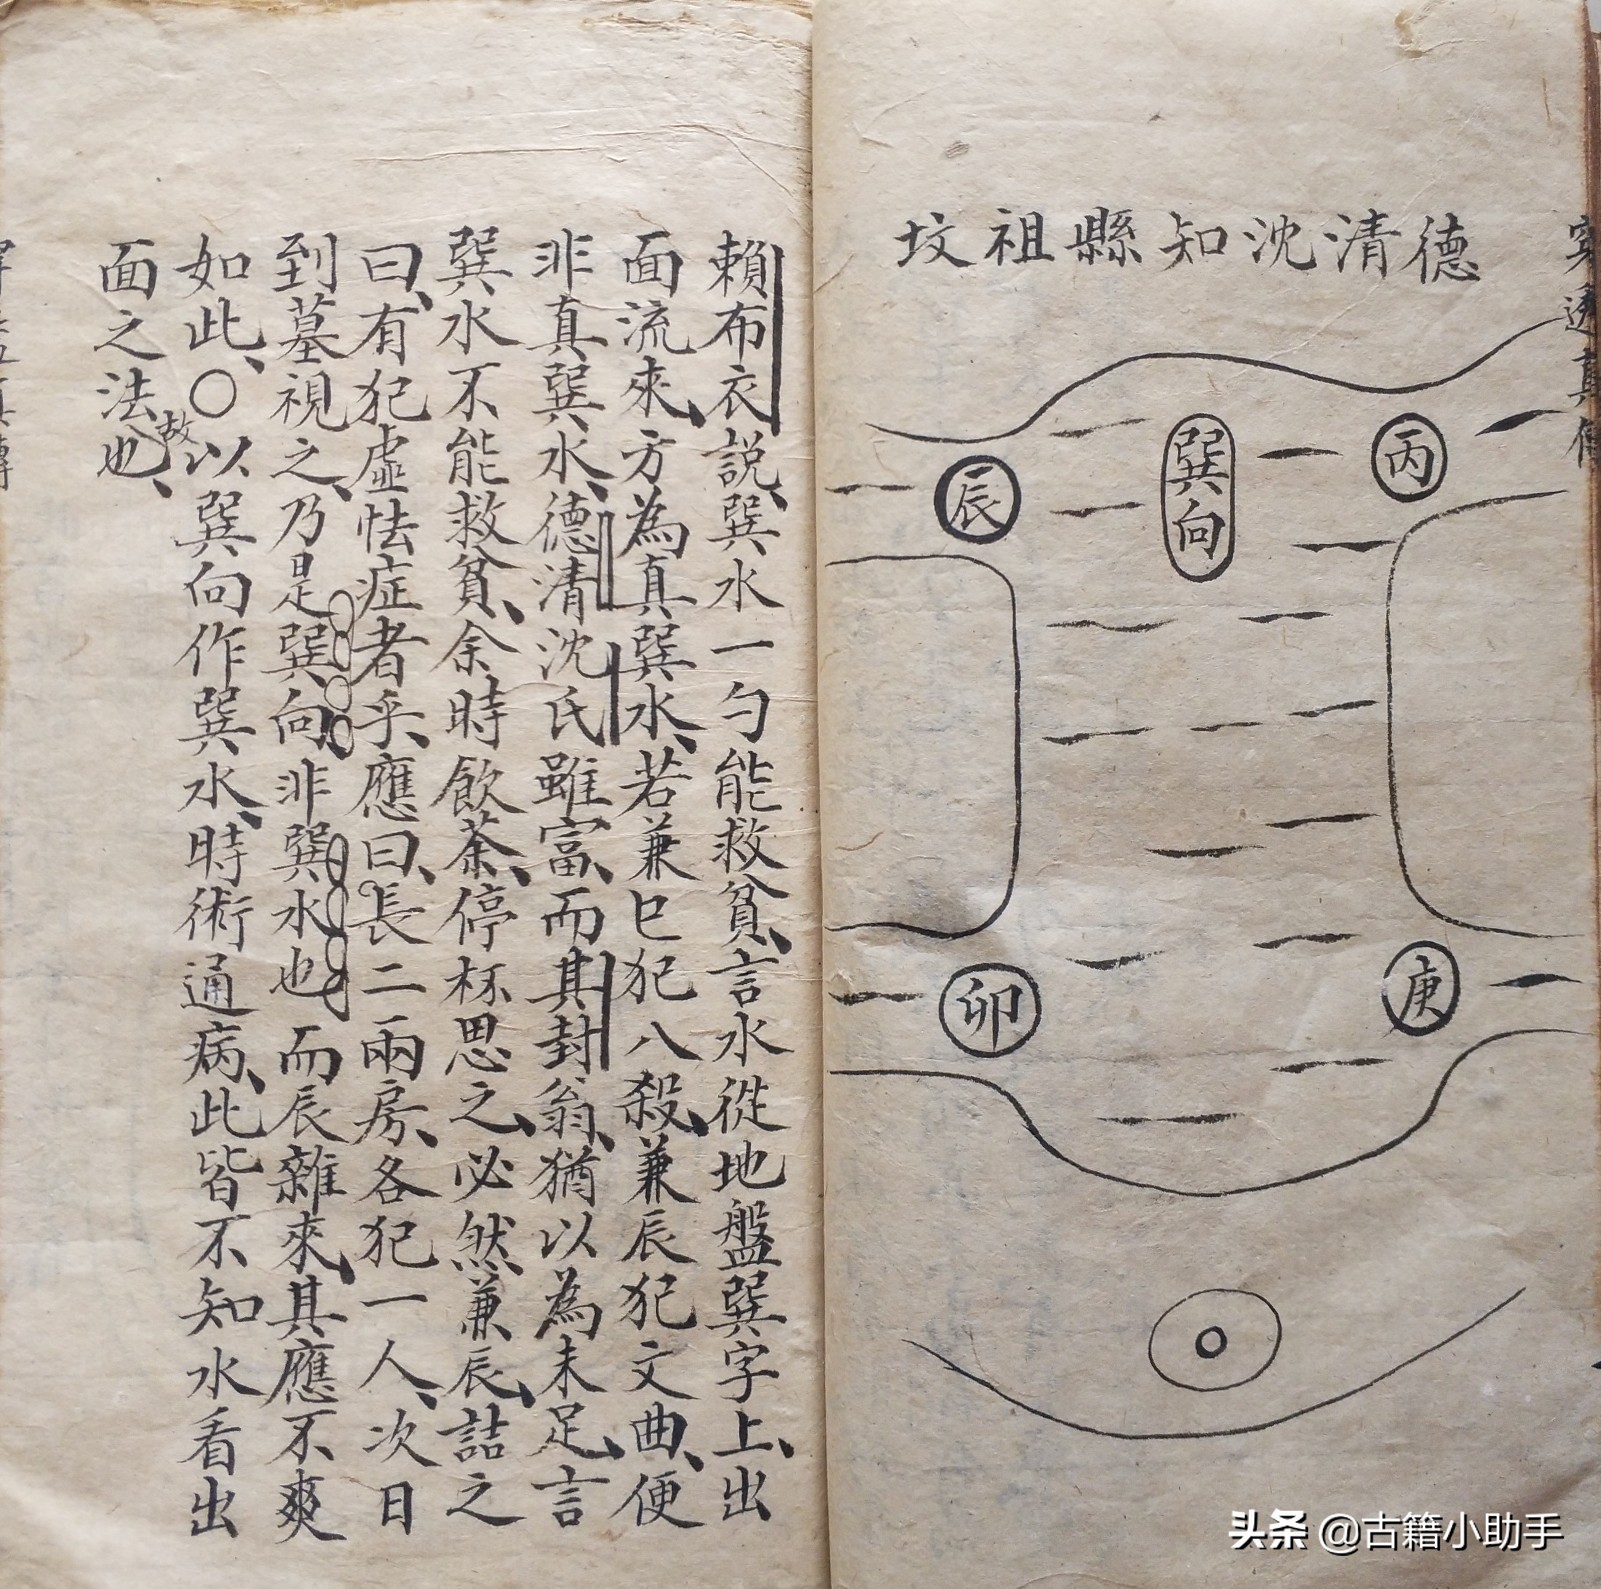 德清沈知縣祖坟
丙
巽向
辰
庚
卯
賴布衣説巽水一勺能救貧言水從地盤巽字上出
面流來方為真巽水若兼巳犯八殺兼辰犯文曲便
非真巽水德清沈氏雖富而其封翁猶以為未足言
巽水不能救貧余時飲茶停杯思之必然兼辰詰之
曰有犯虛怯症者乎應曰長二兩房各犯一人次日
到墓視之乃是巽向非巽水也而辰雜來其應不爽
如此〇故以巽向作巽水時術通病此皆不知水看出
面之法也
头条 @古籍小助手